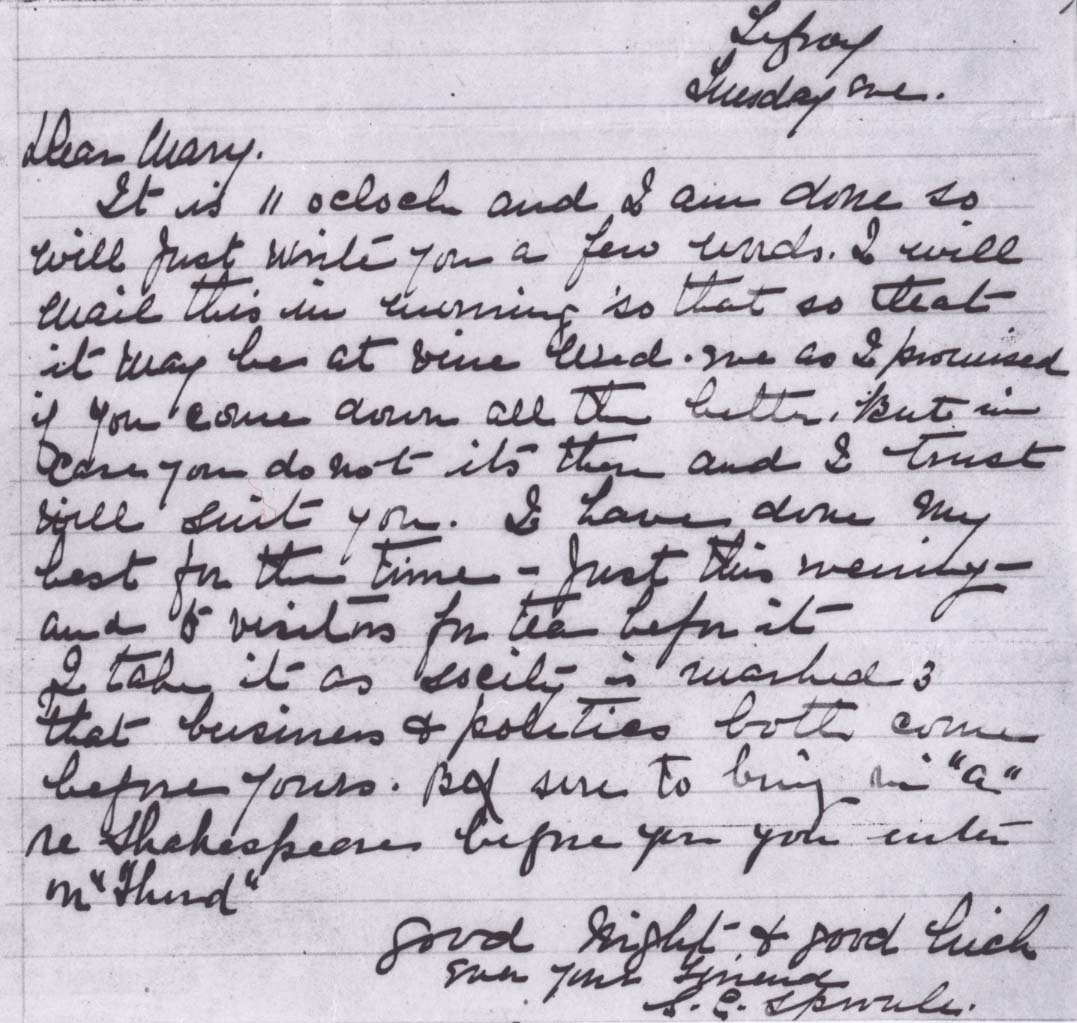 Lefroy
Tuesday eve.
Dear Mary.
It is 11 oclock and I am done so
will just write you a few words. I will
mail this in morning so that so that
it may be at Vine Wed. eve as I promised
if you come down all the better. But in
case you do not its there and I trust
will suit you. I have done my
best for the time - Just this evening -
and 5 visitors for tea before it
I take it as society is marked 3
that business & politics both come
before yours. Be sure to bring in "a"
re Shakespeare before you enter
on "Third"
Good Night & good luck
Ever your friend
S. E. Sproule.